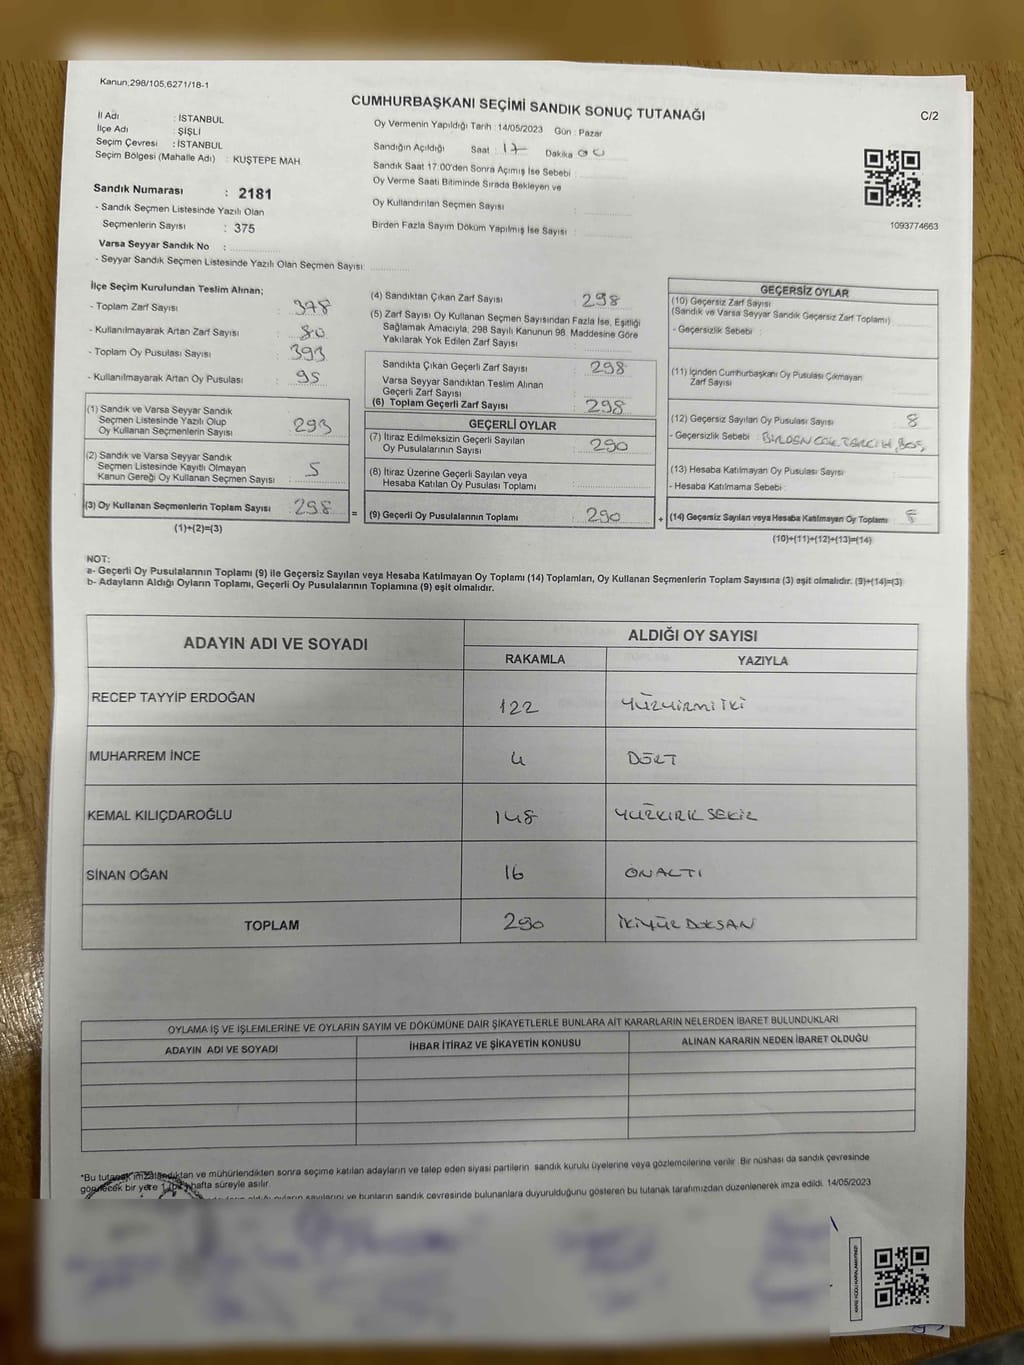 Kanun,298/105,6271/18-1
CUMHURBAŞKANI SEÇİMİ SANDIK SONUÇ TUTANAĞI
C/2
İl Adı : İSTANBUL
İlçe Adı : ŞİŞLİ
Seçim Çevresi : İSTANBUL
Seçim Bölgesi (Mahalle Adı) : KUŞTEPE MAH
Sandık Numarası : 2181
- Sandık Seçmen Listesinde Yazılı Olan
Seçmenlerin Sayısı : 375
Varsa Seyyar Sandık No :
- Seyyar Sandık Seçmen Listesinde Yazılı Olan Seçmen Sayısı:
Oy Vermenin Yapıldığı Tarih : 14/05/2023 Gün : Pazar
Sandığın Açıldığı Saat : 17 Dakika 00
Sandık Saat 17:00'den Sonra Açımış İse Sebebi :
Oy Verme Saati Bitiminde Sırada Bekleyen ve
Oy Kullandırılan Seçmen Sayısı :
Birden Fazla Sayım Döküm Yapılmış İse Sayısı :
1093774663
İlçe Seçim Kurulundan Teslim Alınan;
- Toplam Zarf Sayısı : 378
- Kullanılmayarak Artan Zarf Sayısı : 80
- Toplam Oy Pusulası Sayısı : 393
- Kullanılmayarak Artan Oy Pusulası : 95
(1) Sandık ve Varsa Seyyar Sandık
Seçmen Listesinde Yazılı Olup
Oy Kullanan Seçmenlerin Sayısı : 293
(2) Sandık ve Varsa Seyyar Sandık
Seçmen Listesinde Kayıtlı Olmayan
Kanun Gereği Oy Kullanan Seçmen Sayısı : 5
(3) Oy Kullanan Seçmenlerin Toplam Sayısı : 298
(1)+(2)=(3)
(4) Sandıktan Çıkan Zarf Sayısı : 298
(5) Zarf Sayısı Oy Kullanan Seçmen Sayısından Fazla İse, Eşitliği
Sağlamak Amacıyla, 298 Sayılı Kanunun 98. Maddesine Göre
Yakılarak Yok Edilen Zarf Sayısı :
Sandıkta Çıkan Geçerli Zarf Sayısı : 298
Varsa Seyyar Sandıktan Teslim Alınan
Geçerli Zarf Sayısı :
(6) Toplam Geçerli Zarf Sayısı : 298
GEÇERLİ OYLAR
(7) İtiraz Edilmeksizin Geçerli Sayılan
Oy Pusulalarının Sayısı : 290
(8) İtiraz Üzerine Geçerli Sayılan veya
Hesaba Katılan Oy Pusulası Toplamı :
= (9) Geçerli Oy Pusulalarının Toplamı : 290
GEÇERSİZ OYLAR
(10) Geçersiz Zarf Sayısı
(Sandık ve Varsa Seyyar Sandık Geçersiz Zarf Toplamı) :
- Geçersizlik Sebebi :
(11) İçinden Cumhurbaşkanı Oy Pusulası Çıkmayan
Zarf Sayısı :
(12) Geçersiz Sayılan Oy Pusulası Sayısı : 8
- Geçersizlik Sebebi : BİRDEN ÇOK TERCİH, BOŞ
(13) Hesaba Katılmayan Oy Pusulası Sayısı :
- Hesaba Katılmama Sebebi :
+ (14) Geçersiz Sayılan veya Hesaba Katılmayan Oy Toplamı : 8
(10)+(11)+(12)+(13)=(14)
NOT:
a- Geçerli Oy Pusulalarının Toplamı (9) ile Geçersiz Sayılan veya Hesaba Katılmayan Oy Toplamı (14) Toplamları, Oy Kullanan Seçmenlerin Toplam Sayısına (3) eşit olmalıdır. (9)+(14)=(3)
b- Adayların Aldığı Oyların Toplamı, Geçerli Oy Pusulalarının Toplamına (9) eşit olmalıdır.
ADAYIN ADI VE SOYADI ALDIĞI OY SAYISI
RAKAMLA YAZIYLA
RECEP TAYYİP ERDOĞAN 122 YÜZYİRMİ İKİ
MUHARREM İNCE 4 DÖRT
KEMAL KILIÇDAROĞLU 148 YÜZKIRK SEKİZ
SİNAN OĞAN 16 ONALTI
TOPLAM 290 İKİYÜZ DOKSAN
OYLAMA İŞ VE İŞLEMLERİNE VE OYLARIN SAYIM VE DÖKÜMÜNE DAİR ŞİKAYETLERLE BUNLARA AİT KARARLARIN NELERDEN İBARET BULUNDUKLARI
ADAYIN ADI VE SOYADI İHBAR İTİRAZ VE ŞİKAYETİN KONUSU ALINAN KARARIN NEDEN İBARET OLDUĞU
*Bu tutanak imzalandıktan ve mühürlendikten sonra seçime katılan adayların ve talep eden siyasi partilerin sandık kurulu üyelerine veya gözlemcilerine verilir. Bir nüshası da sandık çevresinde
görülecek bir yere 1 hafta süreyle asılır.
sayılarını ve bunların sandık çevresinde bulunanlara duyurulduğunu gösteren bu tutanak tarafımızdan düzenlenerek imza edildi. 14/05/2023